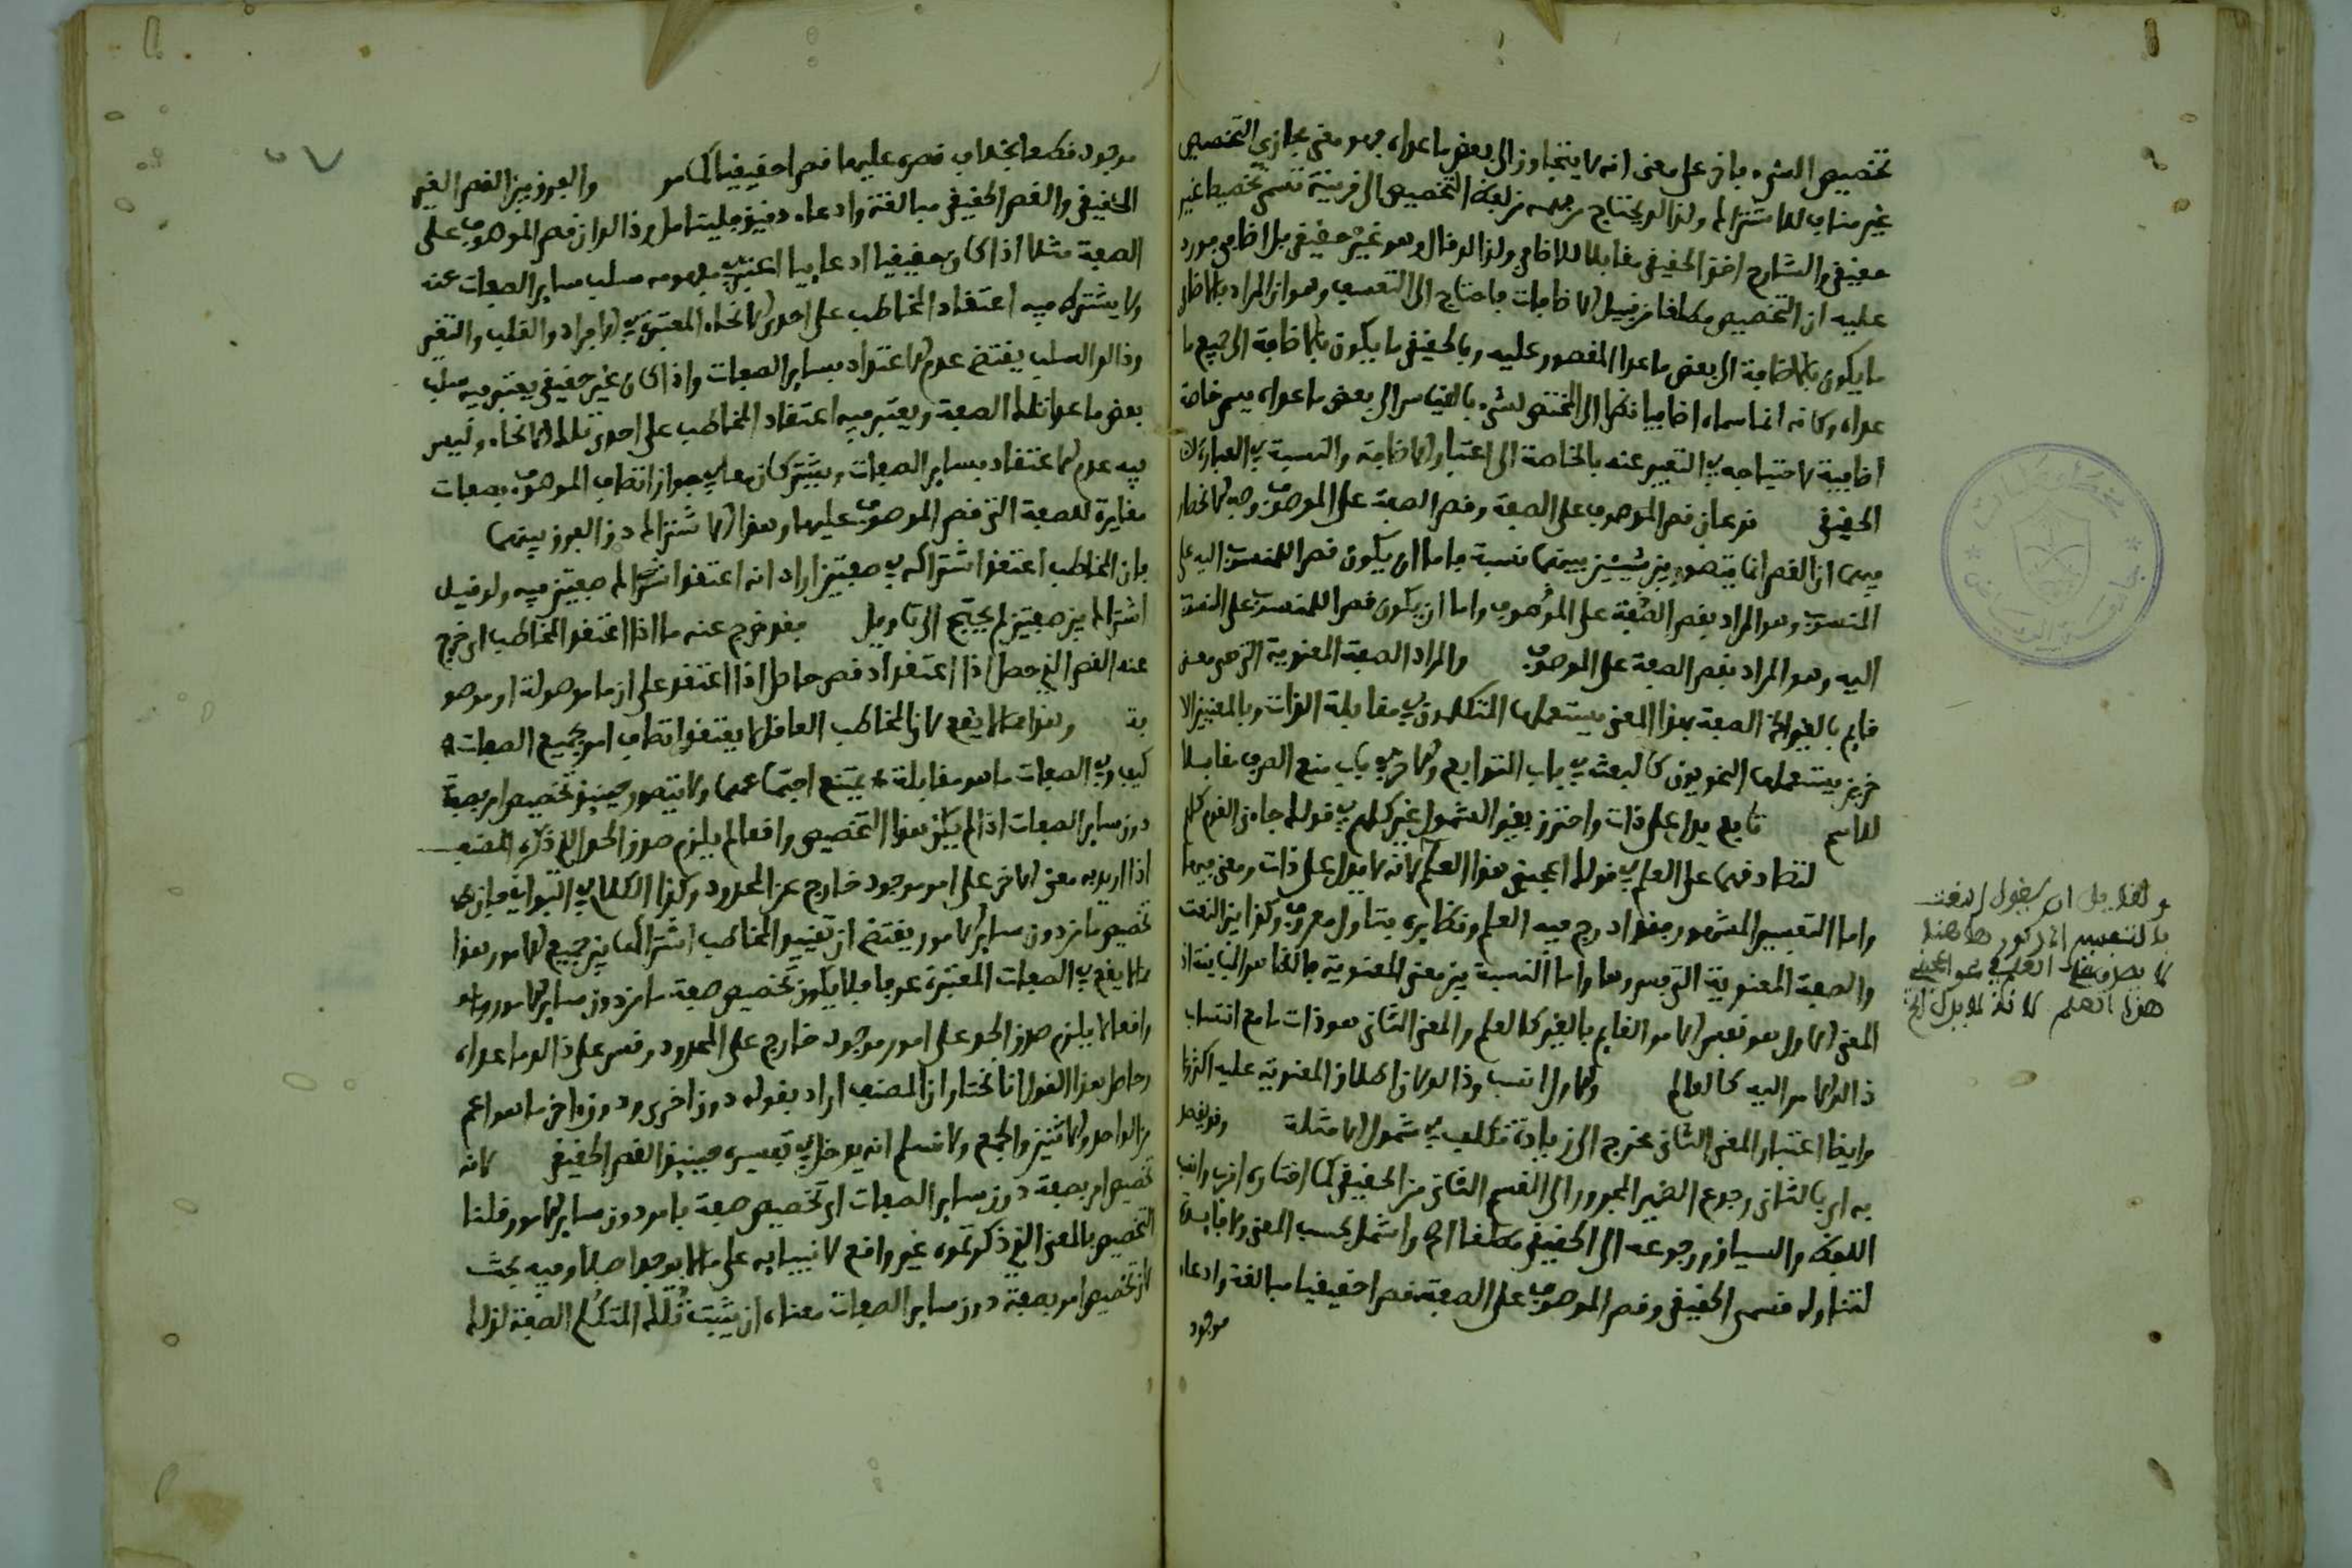 تخصيص الشيء بان على معنى انه لا يتجاوز الى بعض ما عداه فهو معنى مجازي للتخصيص
غير مناف للاشتراك ولذلك يحتاج في فهمه من لفظ التخصيص الى قرينة تسمى تخصيصا غير
حقيقي والشارح اخذ الحقيقي مقابلا للاضافي ولذلك قال وهو غير حقيقي بل اضافي فورد
عليه ان التخصيص مطلقا من قبيل الاضافات فاحتاج الى التعسف وهو ان المراد بالاضافي
ما يكون بالاضافة الى بعض ما عدا المقصور عليه وبالحقيقي ما يكون بالاضافة الى جميع ما
عداه وكانه انما سماه اضافيا نظرا الى المختص لشيء بالقياس الى بعض ما عداه يسمى خاصة
اضافية لاحتياجه في التعبير عنه بالخاصة الى اعتبار الاضافة والنسبة في العبارة
الحقيقي نوعان قصر الموصوف على الصفة وقصر الصفة على الموصوف وجه الانحصار
فيهما ان القصر انما يتصور بين شيئين بينهما نسبة فاما ان يكون قصرا للمنسوب اليه على
المنسوب وهو المراد بقصر الصفة على الموصوف واما ان يكون قصرا للمنسوب على المنسوب
اليه وهو المراد بقصر الصفة على الموصوف والمراد الصفة المعنوية التي هي معنى
قايم بالغير الخ الصفة بهذا المعنى يستعملها المتكلمون في مقابلة الذات وبالمعنيين الا
خرين يستعملها النحويون كالبعث في باب التوابع والاخر في باب منع الصرف مقابلا
للاسم تابع يدل على ذات واحترز بغير الشمول عن كلهم في قولك جاءني القوم كلهم
لتصادقهما على العلم في قولك اعجبني هذا العلم لانه لا يدل على ذات ومعنى فيها
واما التفسير المشهور فقد ادرج فيه العلم ونظايره بتاول معروف وكذا بين النعت
والصفة المعنوية التي فسروها واما النسبة بين معنى المعنوية فالظاهر المباينة اذ
المعنى الاول هو نفس الامر القايم بالغير كالعلم والمعنى الثاني هو ذات ما مع انتساب
ذلك الامر اليه كالعالم والاول انسب وذلك لان اطلاق المعنوية عليه اكثر
وايضا اعتبار المعنى الثاني محوج الى زيادة تكلف في شمول الامثلة وقد يقصد
به اي بالثاني رجوع الضمير المجرور الى القسم الثاني من الحقيقي كما اختاره اقرب وانسب
اللفظ والسياق ورجوعه الى الحقيقي مطلقا اعم واشمل بحسب المعنى والفايدة
لتناوله قسمي الحقيقي وقصر الموصوف على الصفة قصرا حقيقيا مبالغة وادعاء
موجود
ولقايل ان يقول النعت
بالتفسير المذكور هاهنا
لا يصدق على العلم في نحو اعجبني
هذا العلم لانه لا يدل الخ
موجود قطعا بخلاف قصره عليها قصرا حقيقيا كما مر والفرق بين القصر الغير
الحقيقي والقصر الحقيقي مبالغة وادعاء دقيق فليتامل وذلك ان قصر الموصوف على
الصفة مثلا اذا كان حقيقيا ادعاييا اعتبر في مفهومه سلب ساير الصفات عنه
ولا يشترط فيه اعتقاد المخاطب على احدى الانحاء المعتبرة في الافراد والقلب والتعيين
وذلك السلب يقتضي عدم الاعتداد بساير الصفات واذا كان غير حقيقي يعتبر فيه سلب
بعض ما عدا تلك الصفة ويعتبر فيه اعتقاد المخاطب على احدى تلك الانحاء وليس
فيه عدم الاعتداد بساير الصفات ويشتركان معا في جواز اتصاف الموصوف بصفات
مغايرة للصفة التي قصر الموصوف عليها وهذا الاشتراك دق الفرق بينهما
فان المخاطب اعتقد اشتراكه في صفتين اراد انه اعتقد اشتراك صفتين فيه ولو قيل
اشتراك بين صفتين لم يحتج الى تاويل فقد خرج عنه ما اذا اعتقد المخاطب اي خرج
عنه القصر الذي حصل اذا اعتقد او قصر حاصل اذا اعتقد على ان ما موصولة او موصو
فة وهذا مما لا يقع لان المخاطب العاقل لا يعتقد اتصاف امر بجميع الصفات
كيف وفي الصفات ما هو مقابلة يمتنع اجتماعهما ولا يتصور حينيذ تخصيص امر بصفة
دون ساير الصفات اذا لم يكن هذا التخصيص واقعا لم يلزم صدق الحد الذي ذكره المصنف
اذا اريد به معنى الاخر على امر موجود خارج عن المحدود وكذا الكلام في البواقي فان
تخصيص ما مر دون ساير الامور يقتضي ان يعتقد المخاطب اشتراكها بين جميع الامور وهذا
مما لا يقع في الصفات المعتبرة عرفا فلا يكون تخصيص صفة بامر دون ساير الامور
واقعا لا يلزم صدق الحد على امور موجود خارج على المحدود وقس على ذلك ما عداه
وحاصل هذا القول انا نختار ان المصنف اراد بقوله دون اخرى ودون اخر ما هو اعم
من الواحد والاثنين والجمع ولا نسلم انه يدخل في تفسيره حينيذ القصر الحقيقي لانه
تخصيص امر بصفة دون ساير الصفات او تخصيص صفة بامر دون ساير الامور قلنا
التخصيص بالمعنى الذي ذكرتموه غير واقع لا نفيا به على ما لا يوجد اصلا وفيه بحث
لان تخصيص امر بصفة دون ساير الصفات معناه ان يثبت ذلك المتكلم الصفة لذلك